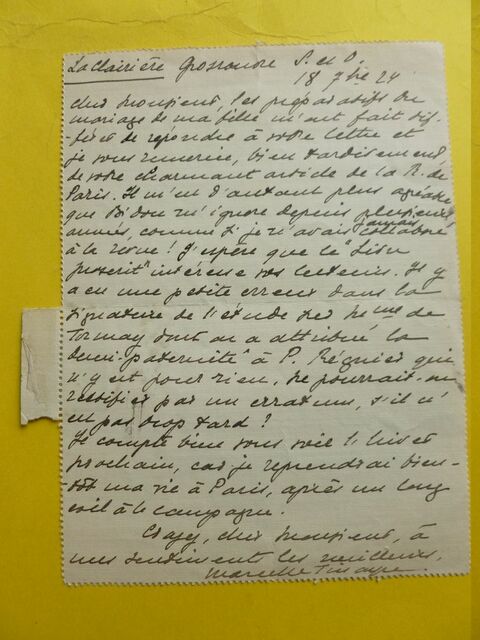 La Clairière Grosrouvre S. et O.
18 7bre 24
Cher Monsieur, les préparatifs du
mariage de ma fille m'ont fait dif-
-férer de répondre à votre lettre et
je vous remercie, bien tardivement,
de votre charmant article de la R. de
Paris. Il m'est d'autant plus agréable
que Bidou m'ignore depuis plusieurs
années, comme si je n'avais jamais collaboré
à la revue ! J'espère que le "Livre
proscrit" intéresse vos lecteurs. Il y
a eu une petite erreur dans la
signature de l'étude sur Mme de
Tormay dont on a attribué la
"demi-paternité" à P. Régnier qui
n'y est pour rien. Ne pourrait-on
rectifier par un erratum, s'il n'
est pas trop tard ?
Je compte bien vous voir l'hiver
prochain, car je reprendrai bien-
-tôt ma vie à Paris, après un long
exil à la campagne.
Croyez, cher Monsieur, à
mes sentiments les meilleurs.
Marcelle Tinayre.